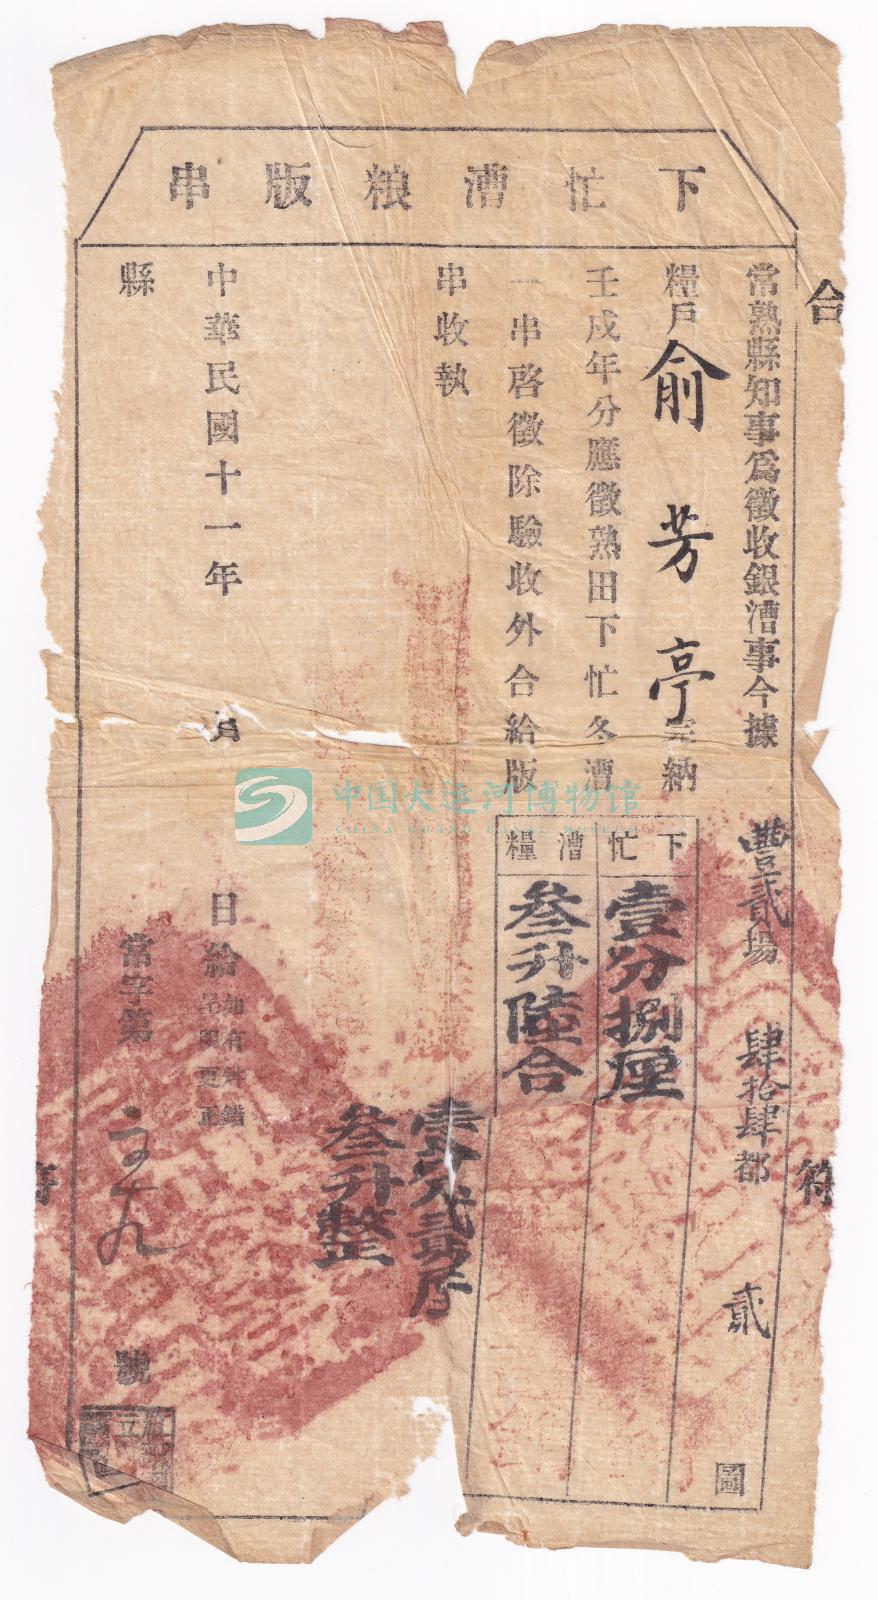 下忙漕粮版串
合
常熟縣知事爲徵收銀漕事今據
豐貳場 肆拾肆都 貳 圖
糧戶俞芳亭完納
壬戌年分應徵熟田下忙冬漕
一串啓徵除驗收外合給版
串收執
下忙
壹分捌厘
漕糧
叁升陸合
叁升整
中華民國十一年 月 日給
如有舛錯
呈明更正
縣
常字第
號
符
符
中国大运河博物馆
CHINA GRAND CANAL MUSEUM